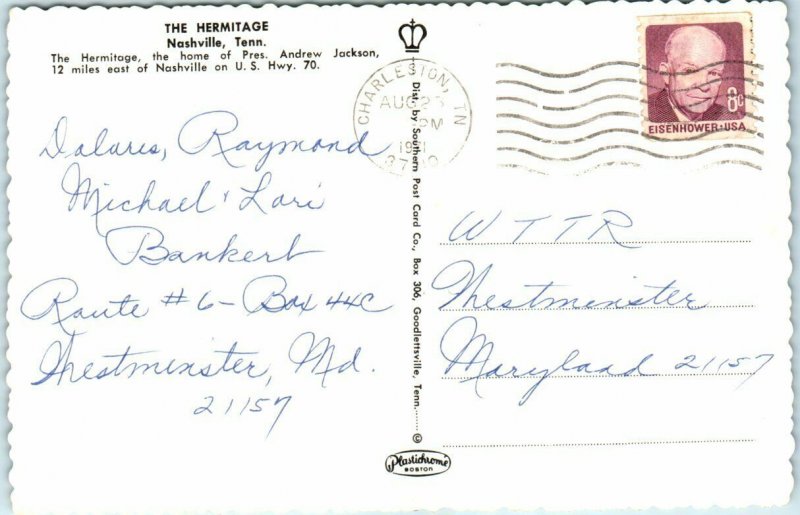 THE HERMITAGE
Nashville, Tenn.
The Hermitage, the home of Pres. Andrew Jackson,
12 miles east of Nashville on U.S. Hwy. 70.
Dolares, Raymond
Michael & Lori
Bankert
Route #6 - Box 44C
Westminster, Md.
21157
Dist. by Southern Post Card Co., Box 306, Goodlettsville, Tenn.
©
Plastichrome
BOSTON
CHARLESTON, TN
AUG 25
PM
EISENHOWER·USA
8c
W T T R
Westminster
Maryland 21157